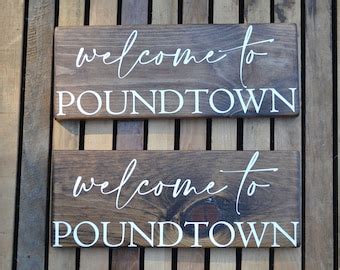 welcome to
POUNDTOWN
welcome to
POUNDTOWN